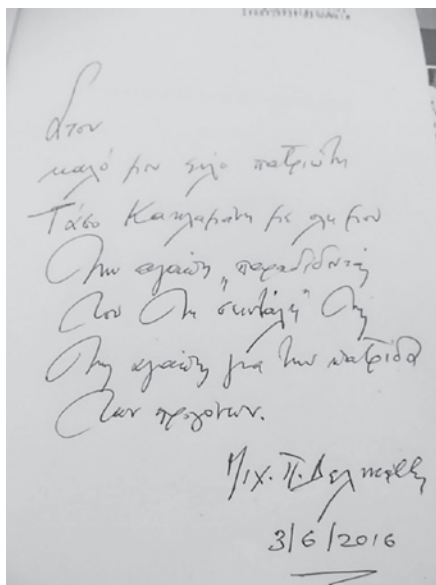 Στον
καλό μου φίλο πατριώτη
Τάσο Κακλαμάνη με όλη μου
την αγάπη "παραδίδοντάς
του τη σκυτάλη" της
της αγάπης για την πατρίδα
των προγόνων.
Μιχ. Π.
3/6/2016